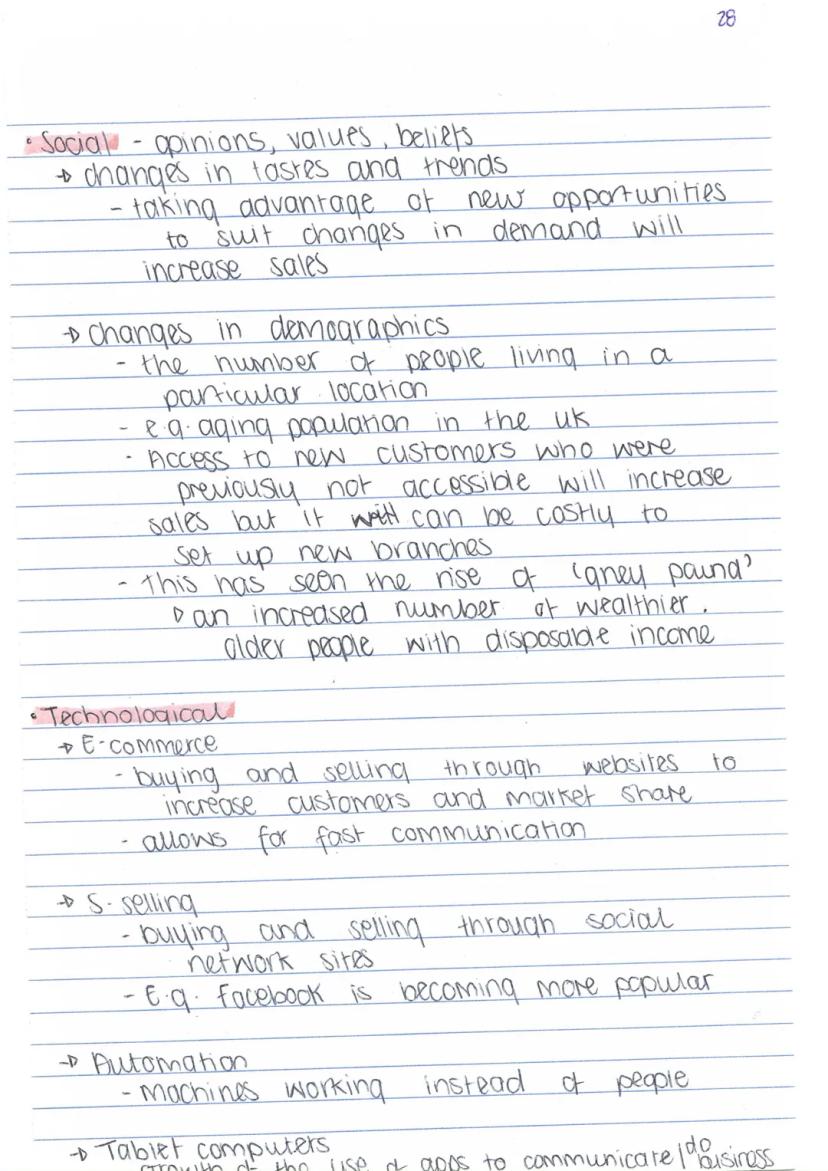 28
• Social - opinions, values, beliefs
→ changes in tastes and trends
- taking advantage of new opportunities
to suit changes in demand will
increase sales
→ changes in demographics
- the number of people living in a
particular location
- e.g. aging population in the uk
- Access to new customers who were
previously not accessible will increase
sales but it can be costly to
set up new branches
- this has seen the rise of 'grey pound'
→ an increased number of wealthier.
older people with disposable income
• Technological
→ E-commerce
- buying and selling through websites to
increase customers and market share
- allows for fast communication
→ S-selling
- buying and selling through social
network sites
- E.g. facebook is becoming more popular
→ Automation
- Machines working instead of people
→ Tablet computers
growth of the use of apps to communicate / do business